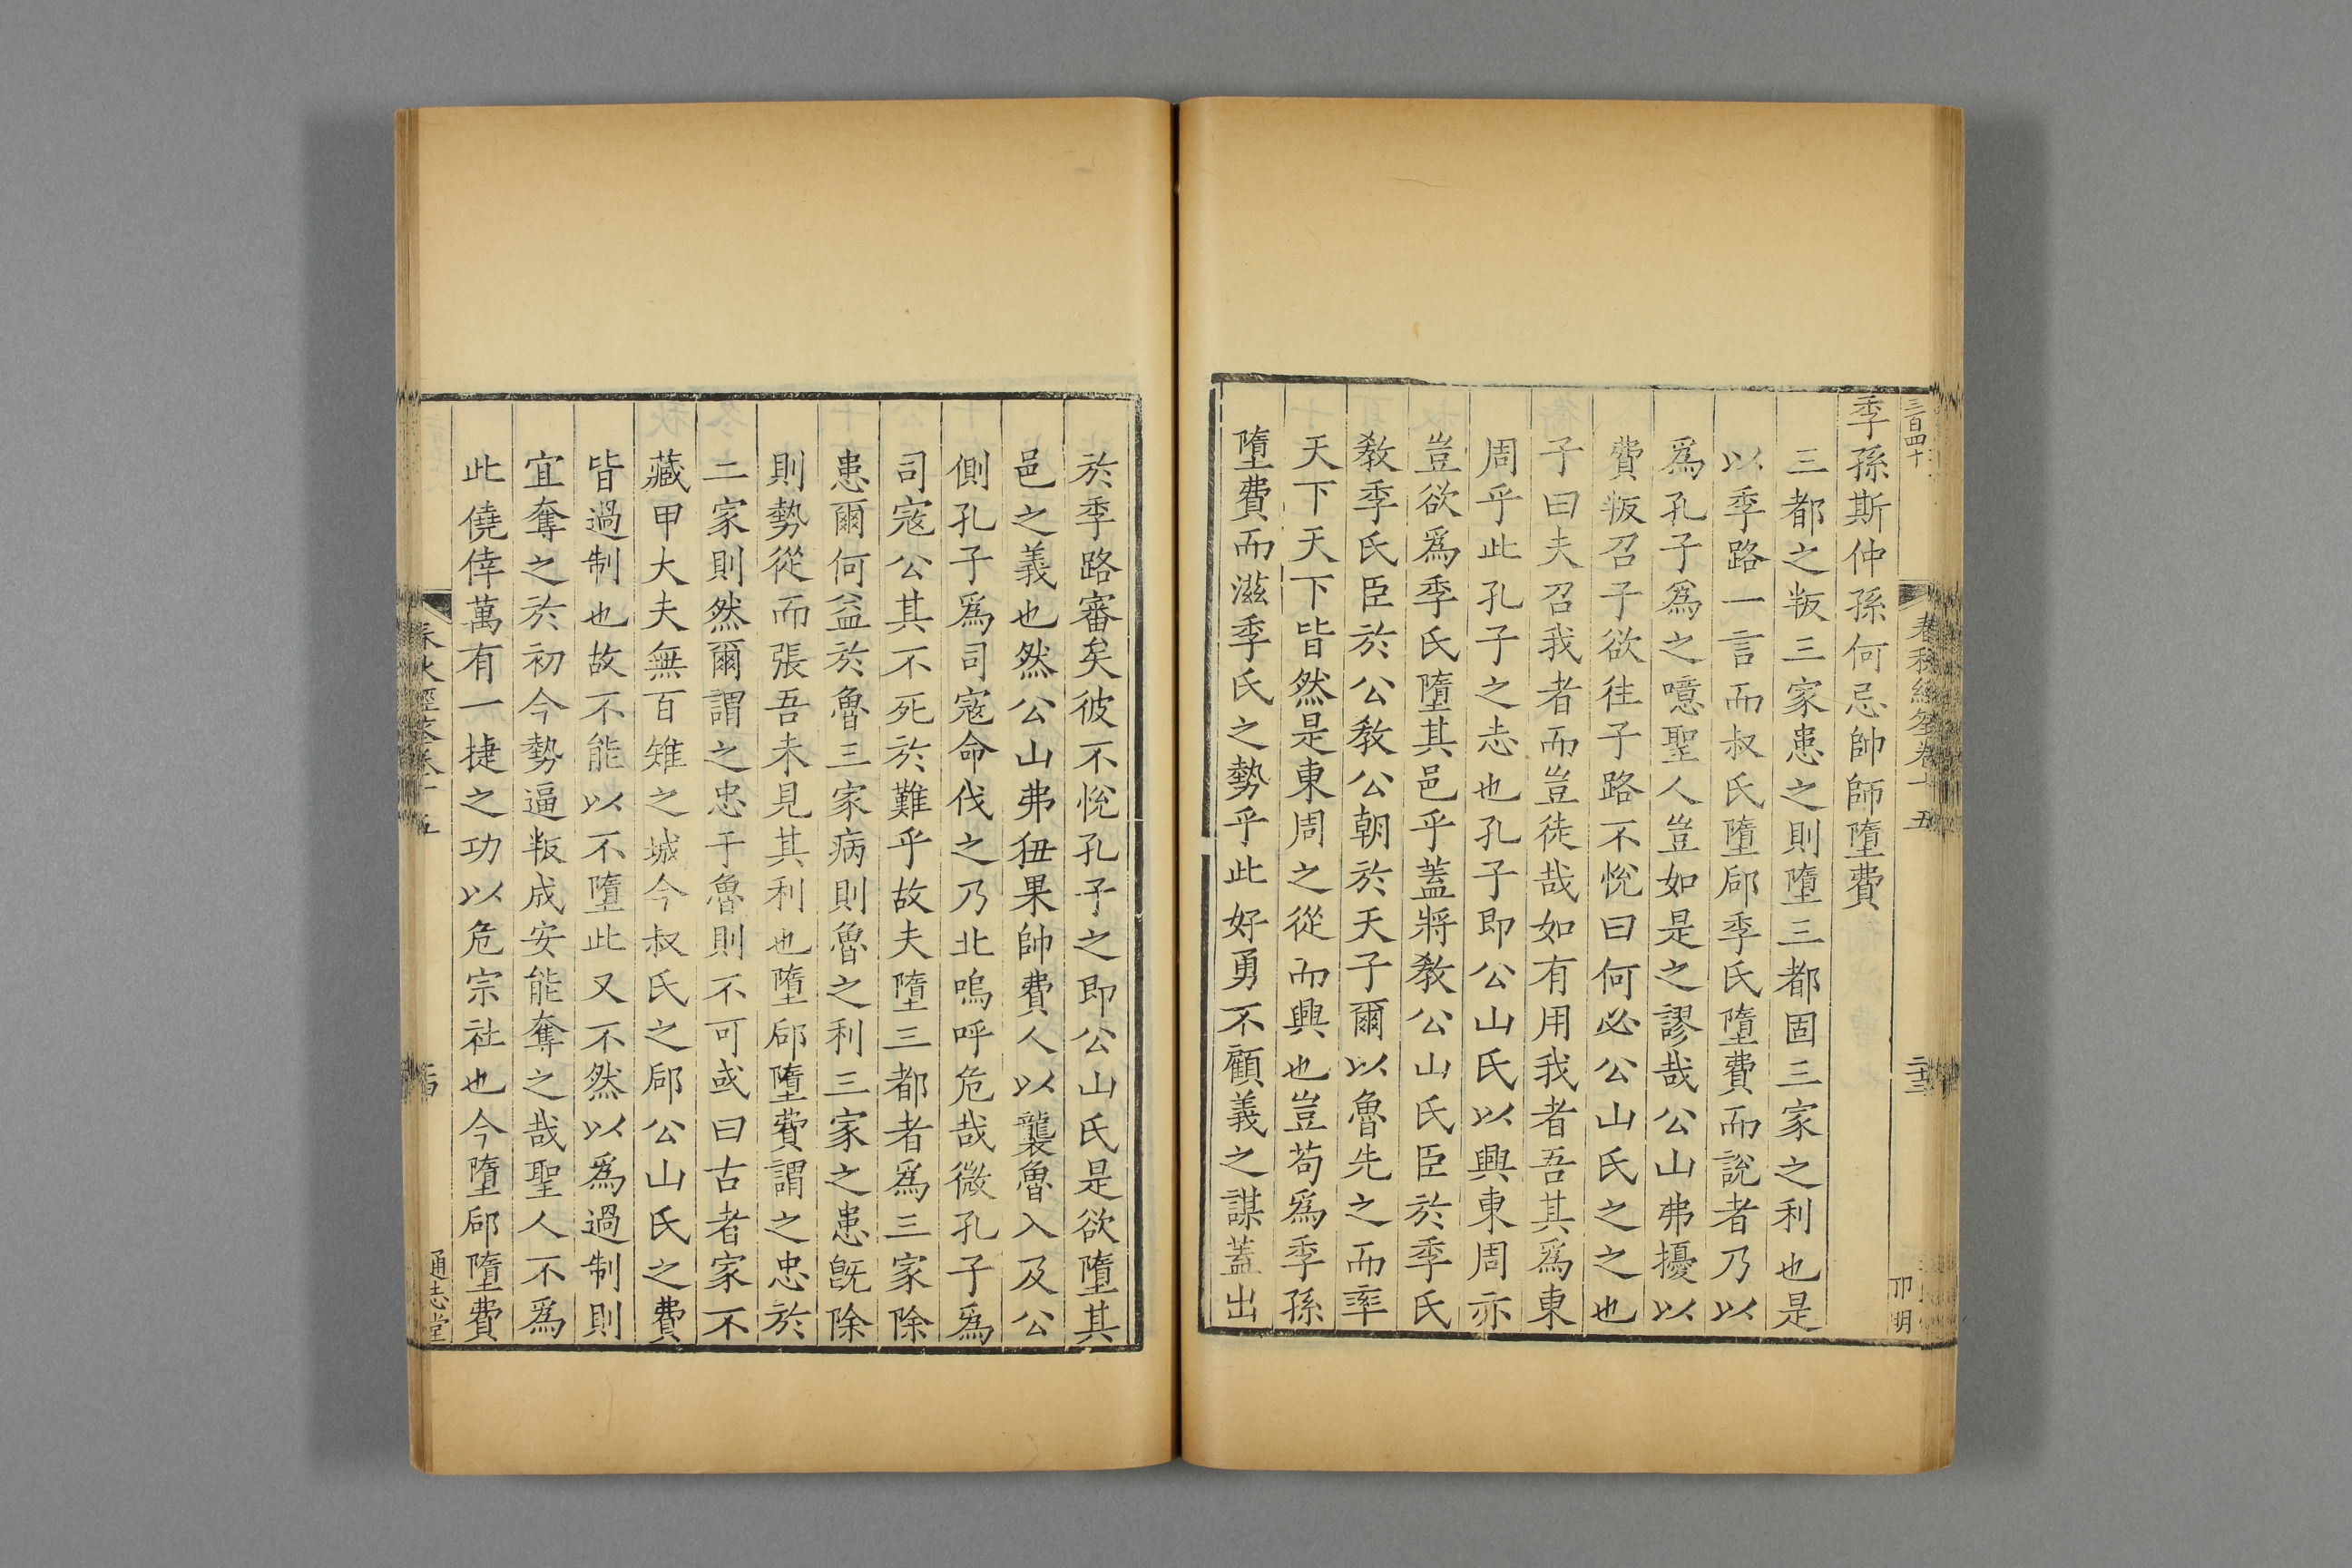 三百四十
春秋經筌卷十五
季孫斯仲孫何忌帥師墮費
三都之叛三家患之則墮三都固三家之利也是
以季路一言而叔氏墮郈季氏墮費而說者乃以
爲孔子爲之噫聖人豈如是之謬哉公山弗擾以
費叛召子欲往子路不悅曰何必公山氏之之也
子曰夫召我者而豈徒哉如有用我者吾其爲東
周乎此孔子之志也孔子即公山氏以興東周亦
豈欲爲季氏墮其邑乎蓋將教公山氏臣於季氏
教季氏臣於公教公朝於天子爾以魯先之而率
天下天下皆然是東周之從而興也豈苟爲季孫
墮費而滋季氏之勢乎此好勇不顧義之謀蓋出
於季路審矣彼不悅孔子之即公山氏是欲墮其
邑之義也然公山弗狃果帥費人以襲魯入及公
側孔子爲司寇命伐之乃北嗚呼危哉微孔子爲
司寇公其不死於難乎故夫墮三都者爲三家除
患爾何益於魯三家病則魯之利三家之患旣除
則勢從而張吾未見其利也墮郈墮費謂之忠於
二家則然爾謂之忠于魯則不可或曰古者家不
藏甲大夫無百雉之城今叔氏之郈公山氏之費
皆過制也故不能以不墮此又不然以爲過制則
宜奪之於初今勢逼叛成安能奪之哉聖人不爲
此僥倖萬有一捷之功以危宗社也今墮郈墮費
通志堂